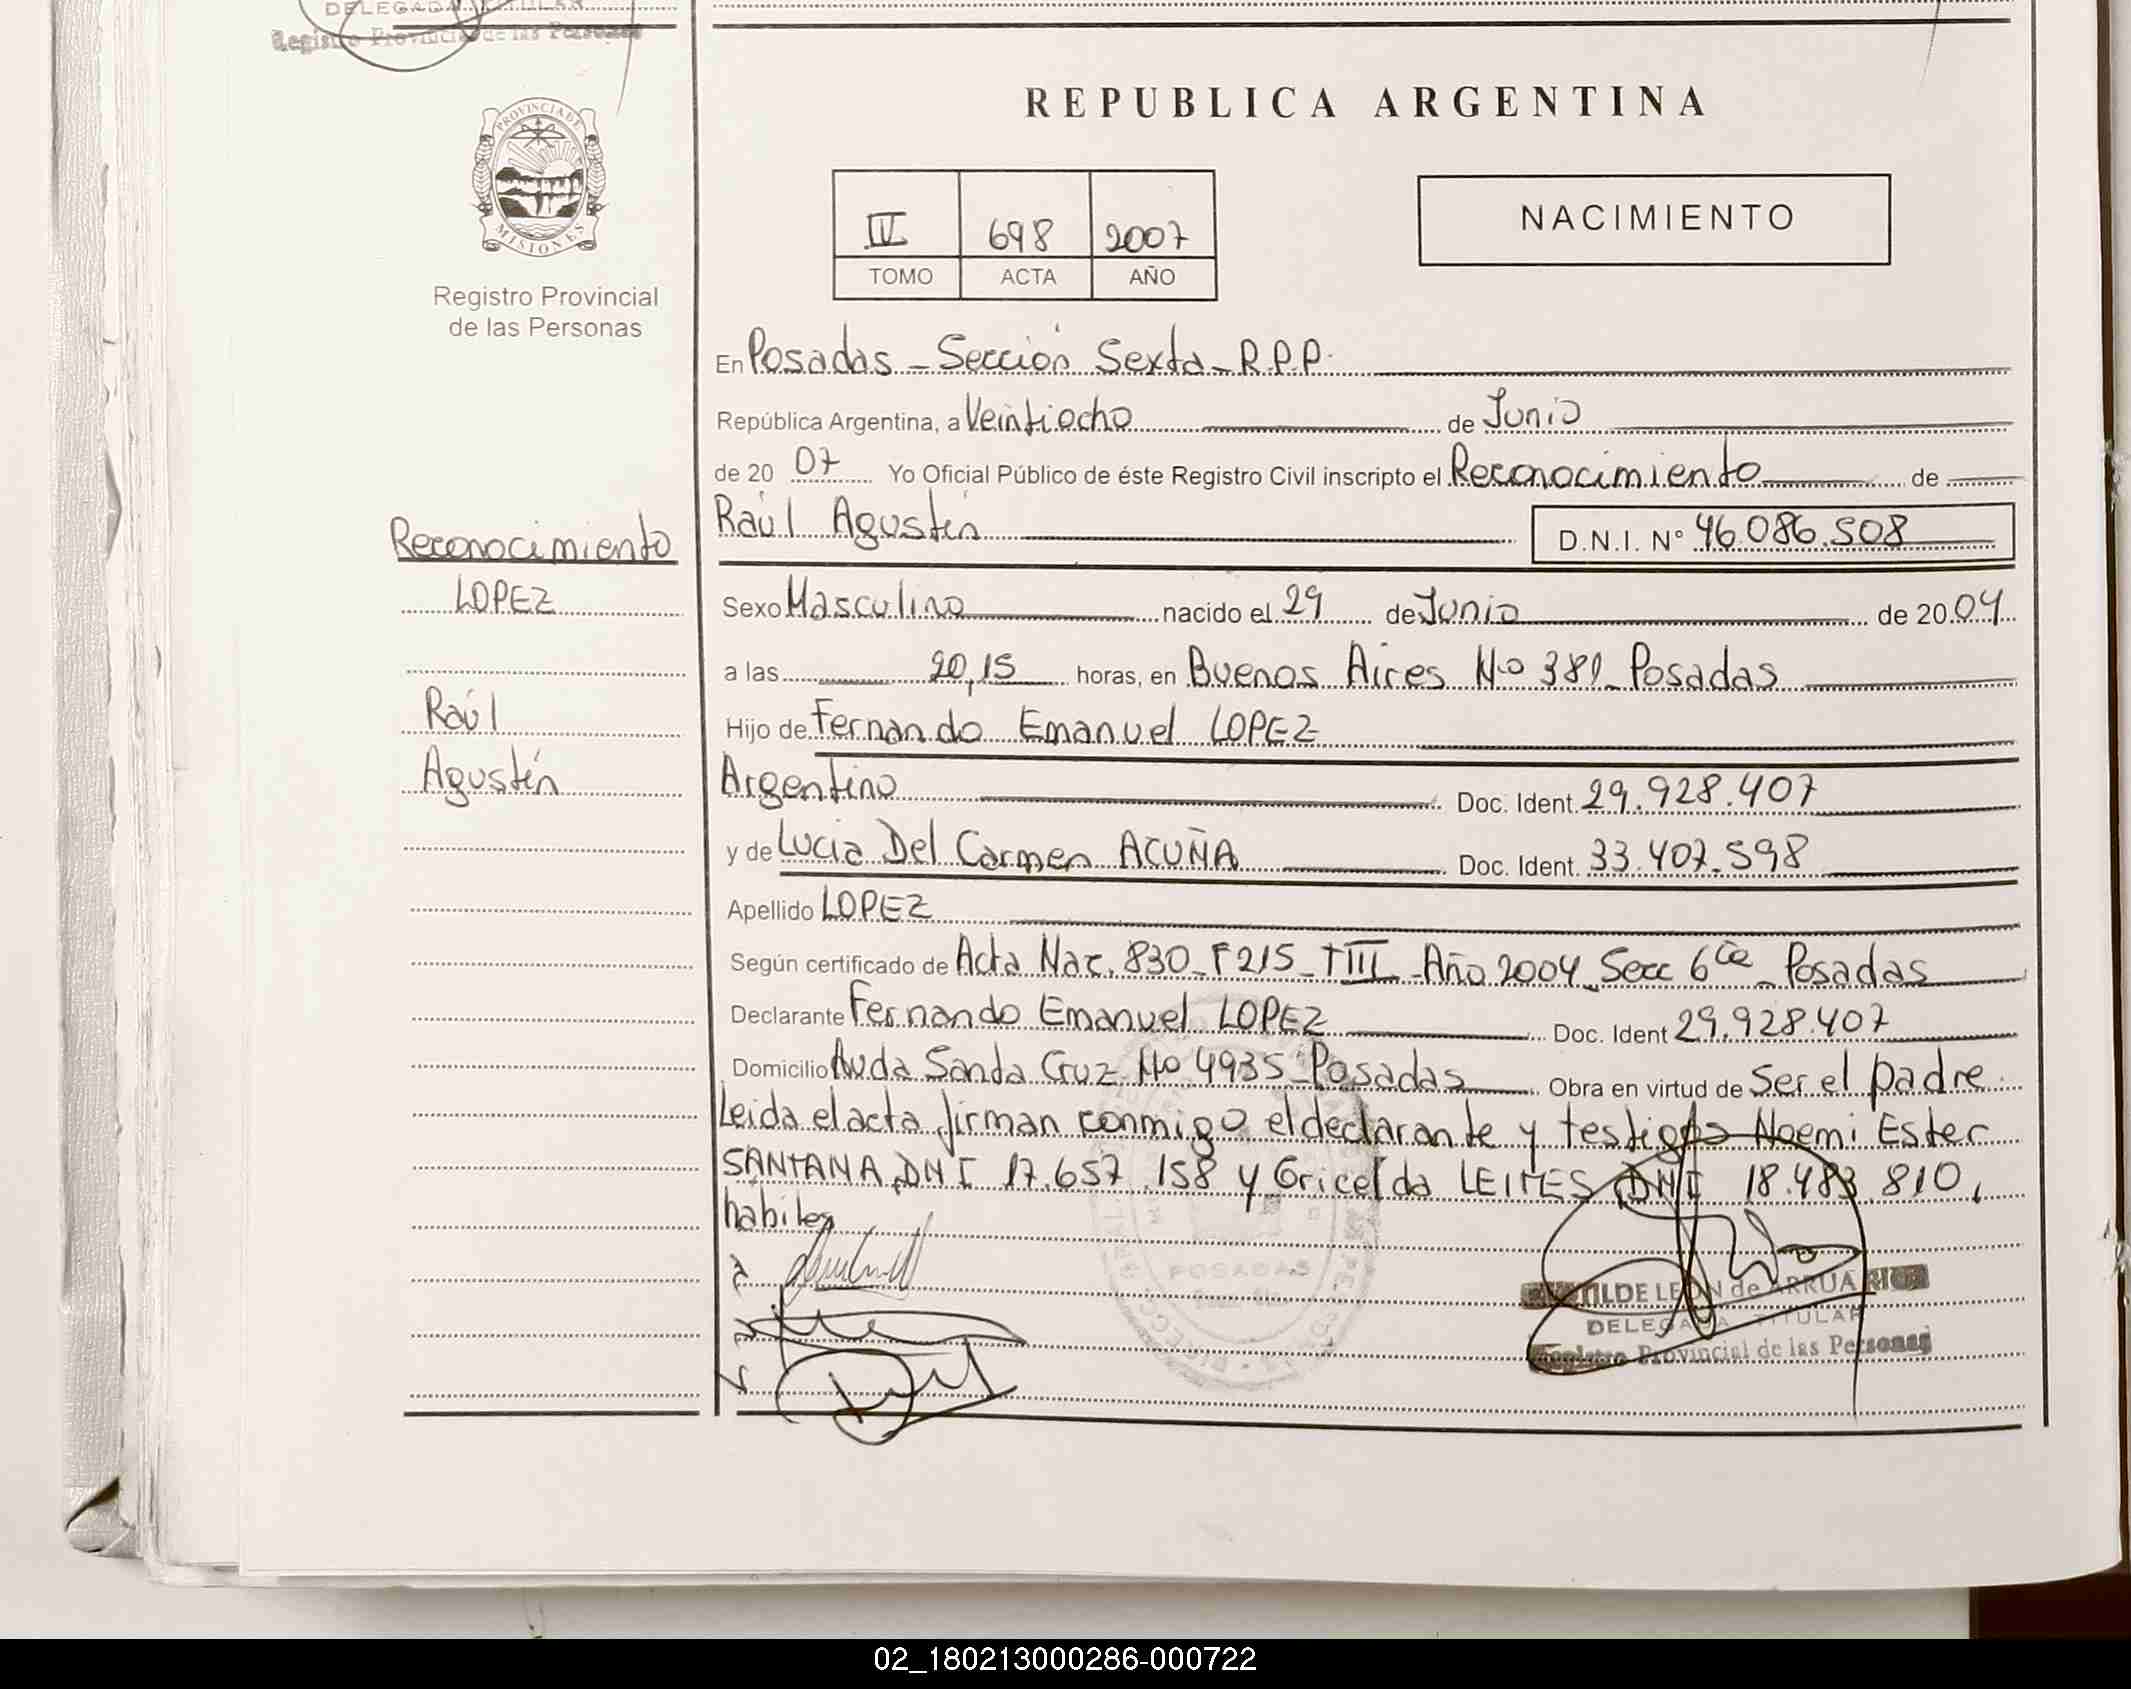 DELEGADA TITULAR
Registro Provincial de las Personas
PROVINCIA DE
MISIONES
Registro Provincial
de las Personas
REPUBLICA ARGENTINA
IV 698 2007
TOMO ACTA AÑO
NACIMIENTO
En Posadas - Sección Sexta - R.P.P.
República Argentina, a Veintiocho de Junio
de 20 07 Yo Oficial Público de éste Registro Civil inscripto el Reconocimiento de
Raúl Agustín D.N.I. N° 46.086.508
Reconocimiento
LOPEZ
Raúl
Agustín
Sexo Masculino nacido el 29 de Junio de 20 04
a las 20,15 horas, en Buenos Aires No 381 - Posadas
Hijo de Fernando Emanuel LOPEZ
Argentino Doc. Ident. 29.928.407
y de Lucia Del Carmen ACUÑA Doc. Ident. 33.407.598
Apellido LOPEZ
Según certificado de Acta Nac. 830 - F 215 - T III - Año 2004 - Secc 6ta - Posadas
Declarante Fernando Emanuel LOPEZ Doc. Ident 29.928.407
Domicilio Avda Santa Cruz No 4935 - Posadas Obra en virtud de Ser el padre.
Leida el acta firman conmigo el declarante y testigos Noemi Ester
SANTANA, DNI 17.657.158 y Gricelda LEITES DNI 18.483.810,
habiles
POSADAS
TILDE LEON de ARRUA
DELEGADA TITULAR
Registro Provincial de las Personas
02_180213000286-000722